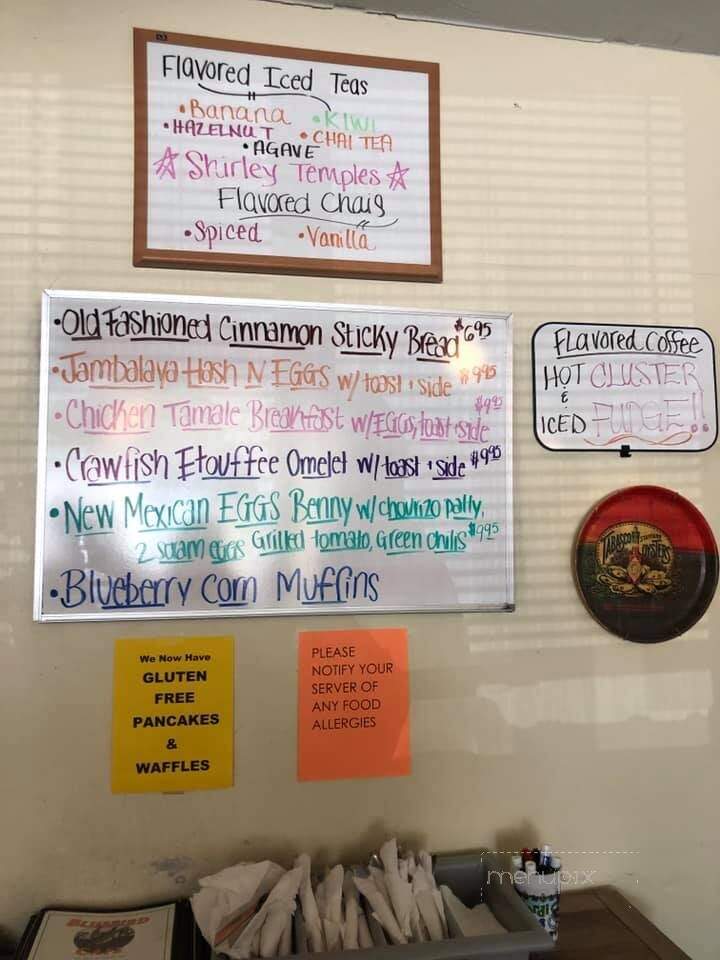 Flavored Iced Teas
• Banana • KIWI
• HAZELNUT • CHAI TEA
• AGAVE
Shirley Temples
Flavored Chais
• Spiced • Vanilla
• Old Fashioned Cinnamon Sticky Bread $6.95
• Jambalaya Hash N EGGS w/ toast & side $9.95
• Chicken Tamale Breakfast w/EGGS, toast & side $9.95
• Crawfish Etouffee Omelet w/ toast & side $9.95
• New Mexican EGGS Benny w/ chourizo patty,
2 scram eggs Grilled tomato, Green chilis $9.95
• Blueberry Corn Muffins
Flavored Coffee
HOT CLUSTER
&
ICED FUDGE!!
TABASCO
OYSTERS
We Now Have
GLUTEN
FREE
PANCAKES
&
WAFFLES
PLEASE
NOTIFY YOUR
SERVER OF
ANY FOOD
ALLERGIES
menupix
BLUEBIRD